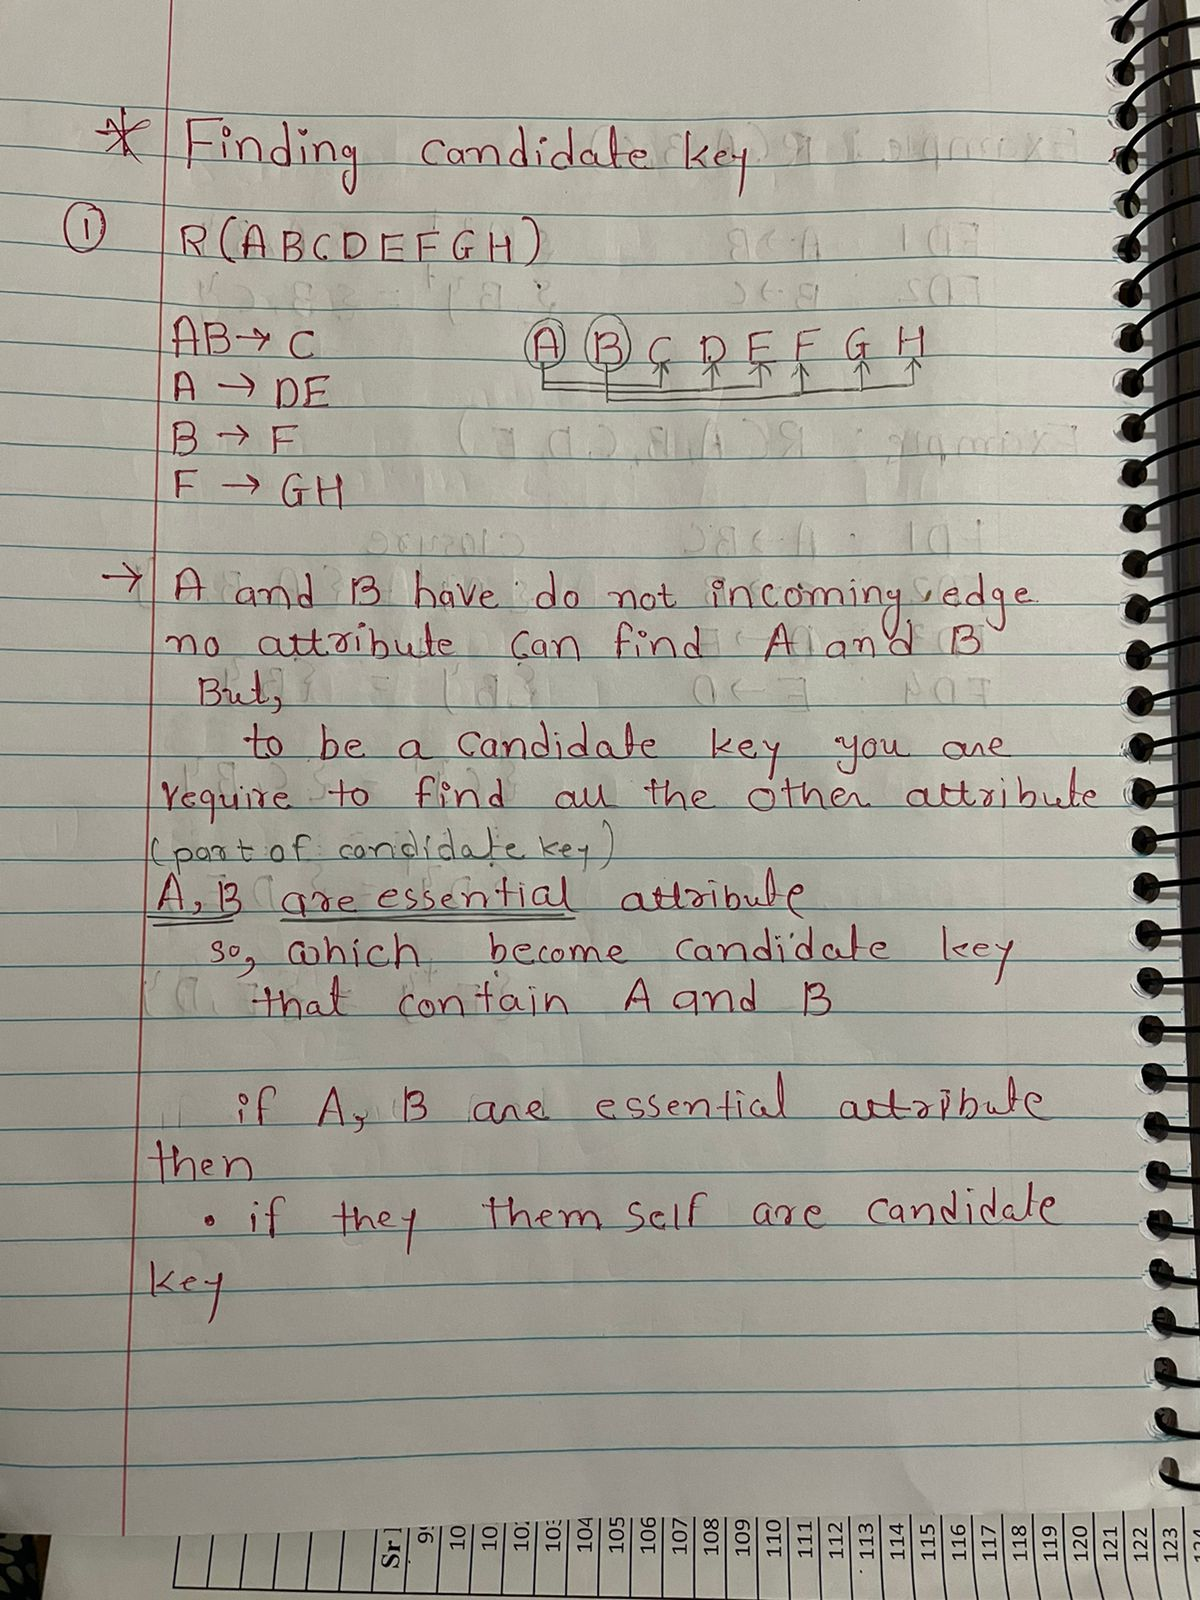 * Finding candidate key
① R(ABCDEFGH)
AB→ C
A → DE
B → F
F → GH
A B C D E F G H
→ A and B have do not incoming edge
no attribute can find A and B
But,
to be a candidate key you are
require to find all the other attribute
(part of candidate key)
A, B are essential attribute
so, which become candidate key
that contain A and B
if A, B are essential attribute
then
• if they them self are candidate
key
Sr
101
102
103
104
105
106
107
108
109
110
111
112
113
114
115
116
117
118
119
120
121
122
123